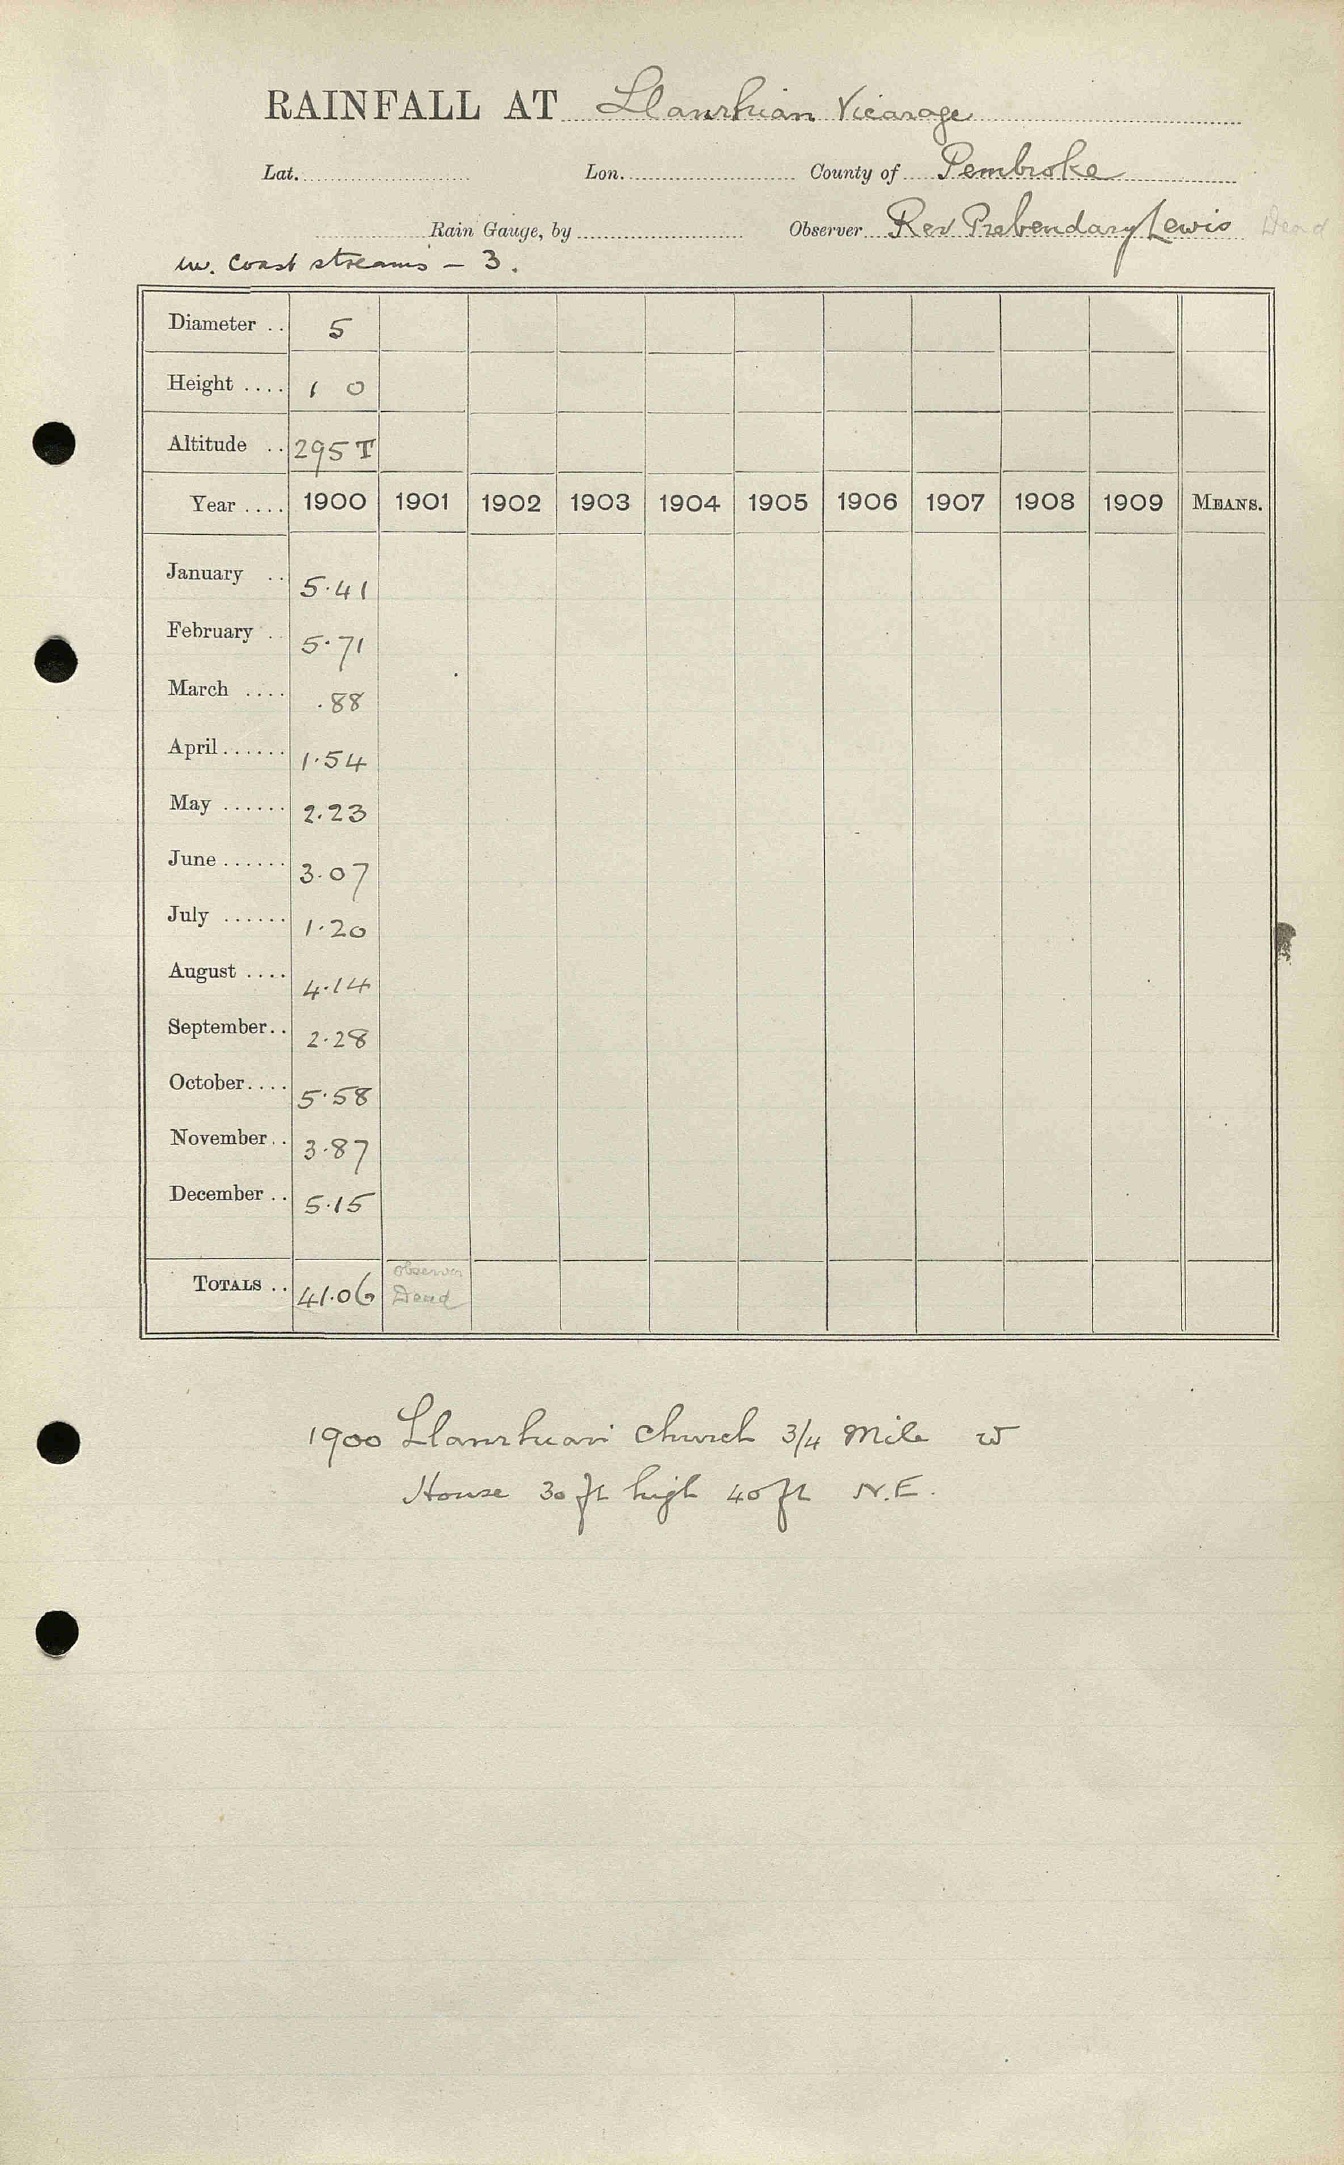 RAINFALL AT Llanrhian Vicarage
Lat. Lon. County of Pembroke
Rain Gauge, by Observer Rev Prebendary Lewis Dead
W. Coast streams – 3.
Diameter .. 5
Height .... 1 0
Altitude .. 295 T
Year .... 1900 1901 1902 1903 1904 1905 1906 1907 1908 1909 MEANS.
January .. 5.41
February .. 5.71
March .... .88
April ...... 1.54
May ...... 2.23
June ...... 3.07
July ...... 1.20
August .... 4.14
September .. 2.28
October .... 5.58
November .. 3.87
December .. 5.15
TOTALS .. 41.06 observer Dead
1900 Llanrhian Church 3/4 Mile W
House 30 ft high 40 ft N.E.